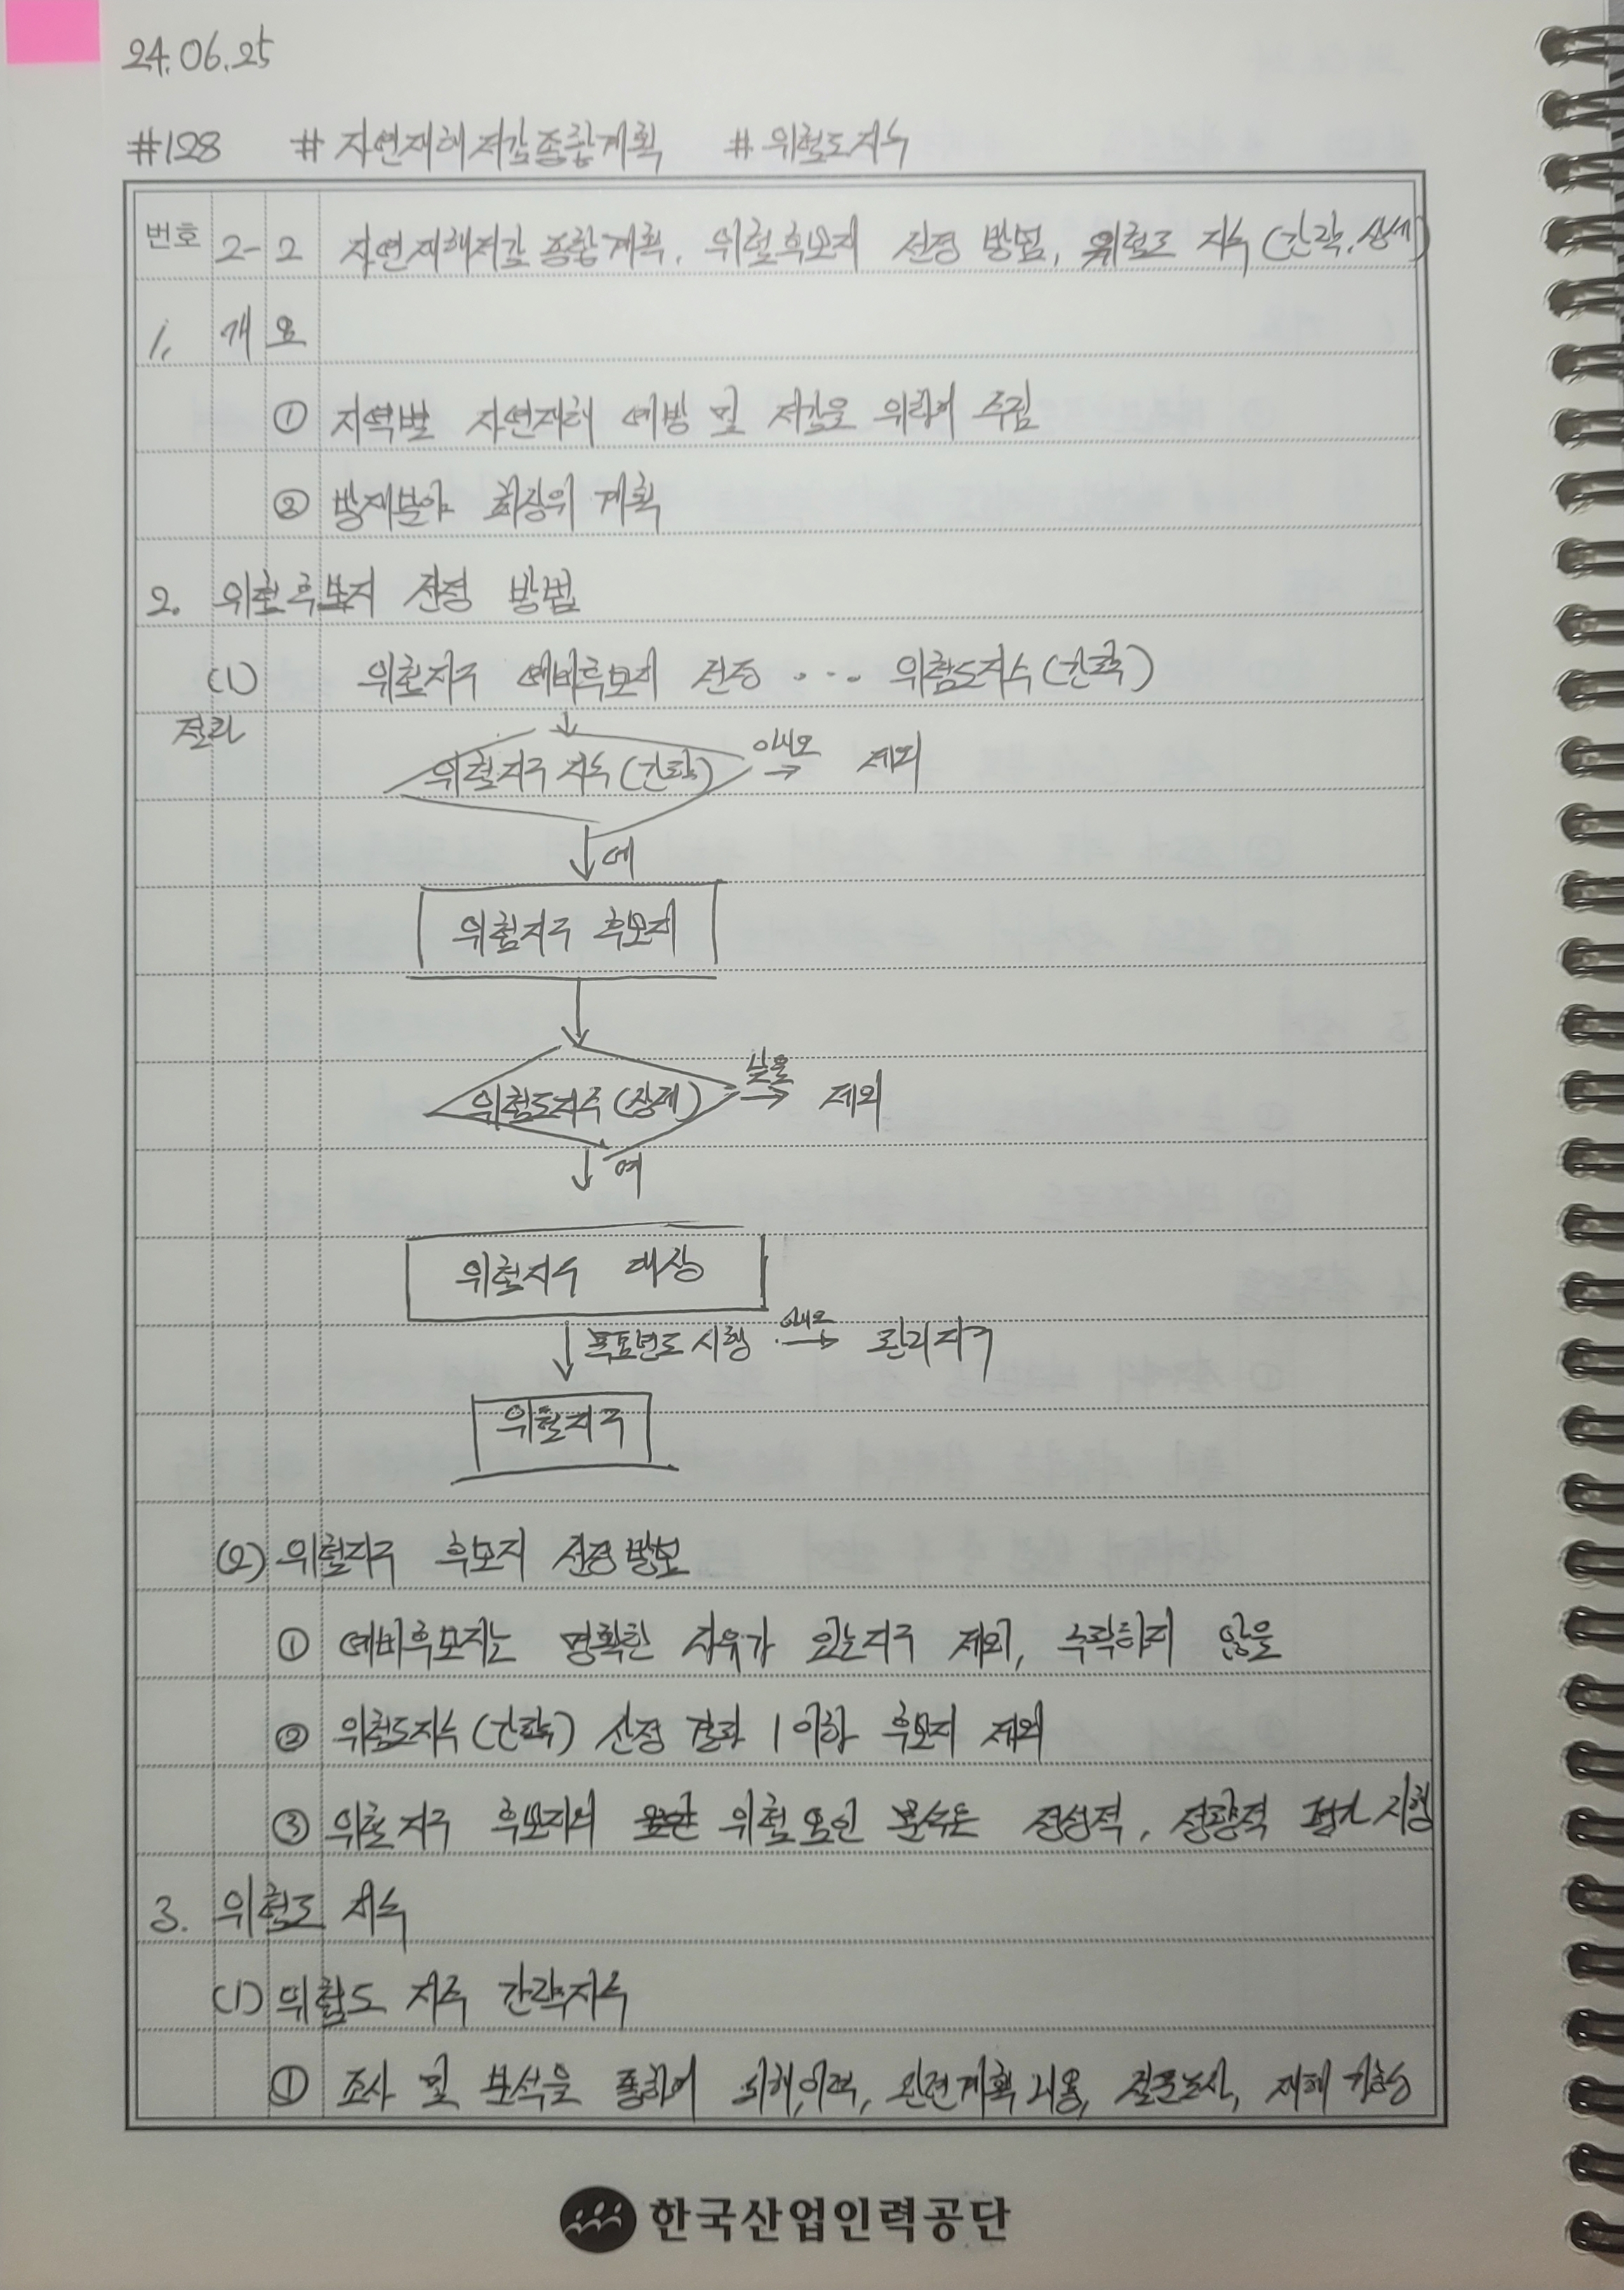 24.06.25
#128 #자연재해저감종합계획 #위험도지수
번호 2-2 자연재해저감 종합계획, 위험후보지 선정 방법, 위험도 지수(간략, 상세)
1. 개요
① 지역별 자연재해 예방 및 저감을 위하여 수립
② 방재분야 최상위 계획
2. 위험후보지 선정 방법
(1) 위험지구 예비후보지 선정 ··· 위험도지수(간략)
절차
위험지구 지수(간략) 아니오 → 제외
↓ 예
위험지구 후보지
↓
위험도지수(상세) → 제외
↓ 예
위험지수 대상
↓ 목표년도 시행 아니오 → 관리지구
위험지구
(2) 위험지구 후보지 선정방법
① 예비후보지는 명확한 사유가 있는지구 제외, 누락하지 않음
② 위험도지수(간략) 산정 결과 1이하 후보지 제외
③ 위험지구 후보지의 위험요인 분석은 정성적, 정량적 평가 시행
3. 위험도 지수
(1) 위험도 지수 간략지수
① 조사 및 분석을 통하여 피해이력, 관련계획 내용, 설문조사, 재해 가능성
한국산업인력공단